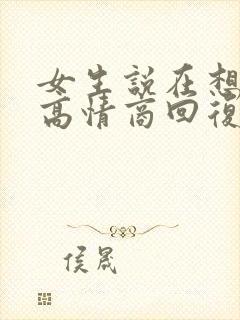 女生説在想
高情商回復
侯晟